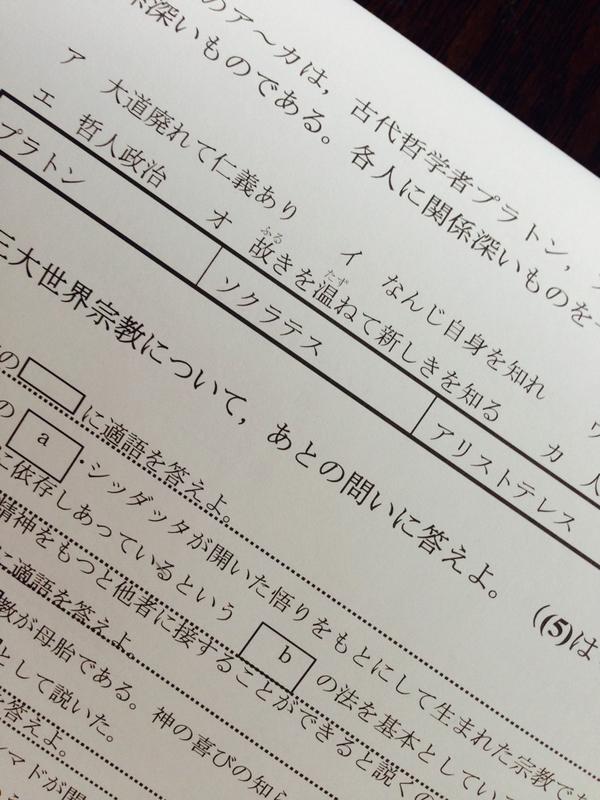 のア～カは，古代哲学者プラトン，
係深いものである。各人に関係深いものを一
ア 大道廃れて仁義あり イ なんじ自身を知れ
エ 哲人政治 オ 故きを温ねて新しきを知る カ 人
ふる
たず
プラトン ソクラテス アリストテレス
三大世界宗教について，あとの問いに答えよ。 ((5)は
の に適語を答えよ。
の a・シッダッタが開いた悟りをもとにして生まれた宗教で
に依存しあっているという b の法を基本としてい
精神をもつと他者に接することができると説くの
に適語を答えよ。
教が母胎である。神の喜びの知ら
として説いた。
答えよ。
マドが開